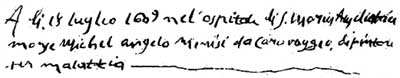 A lì 18 luglio 1609 nel ospitale di S. Maria Ausiliatrice
morse Michel Angelo Merisi da Caravaggio, dipintore
per malattia